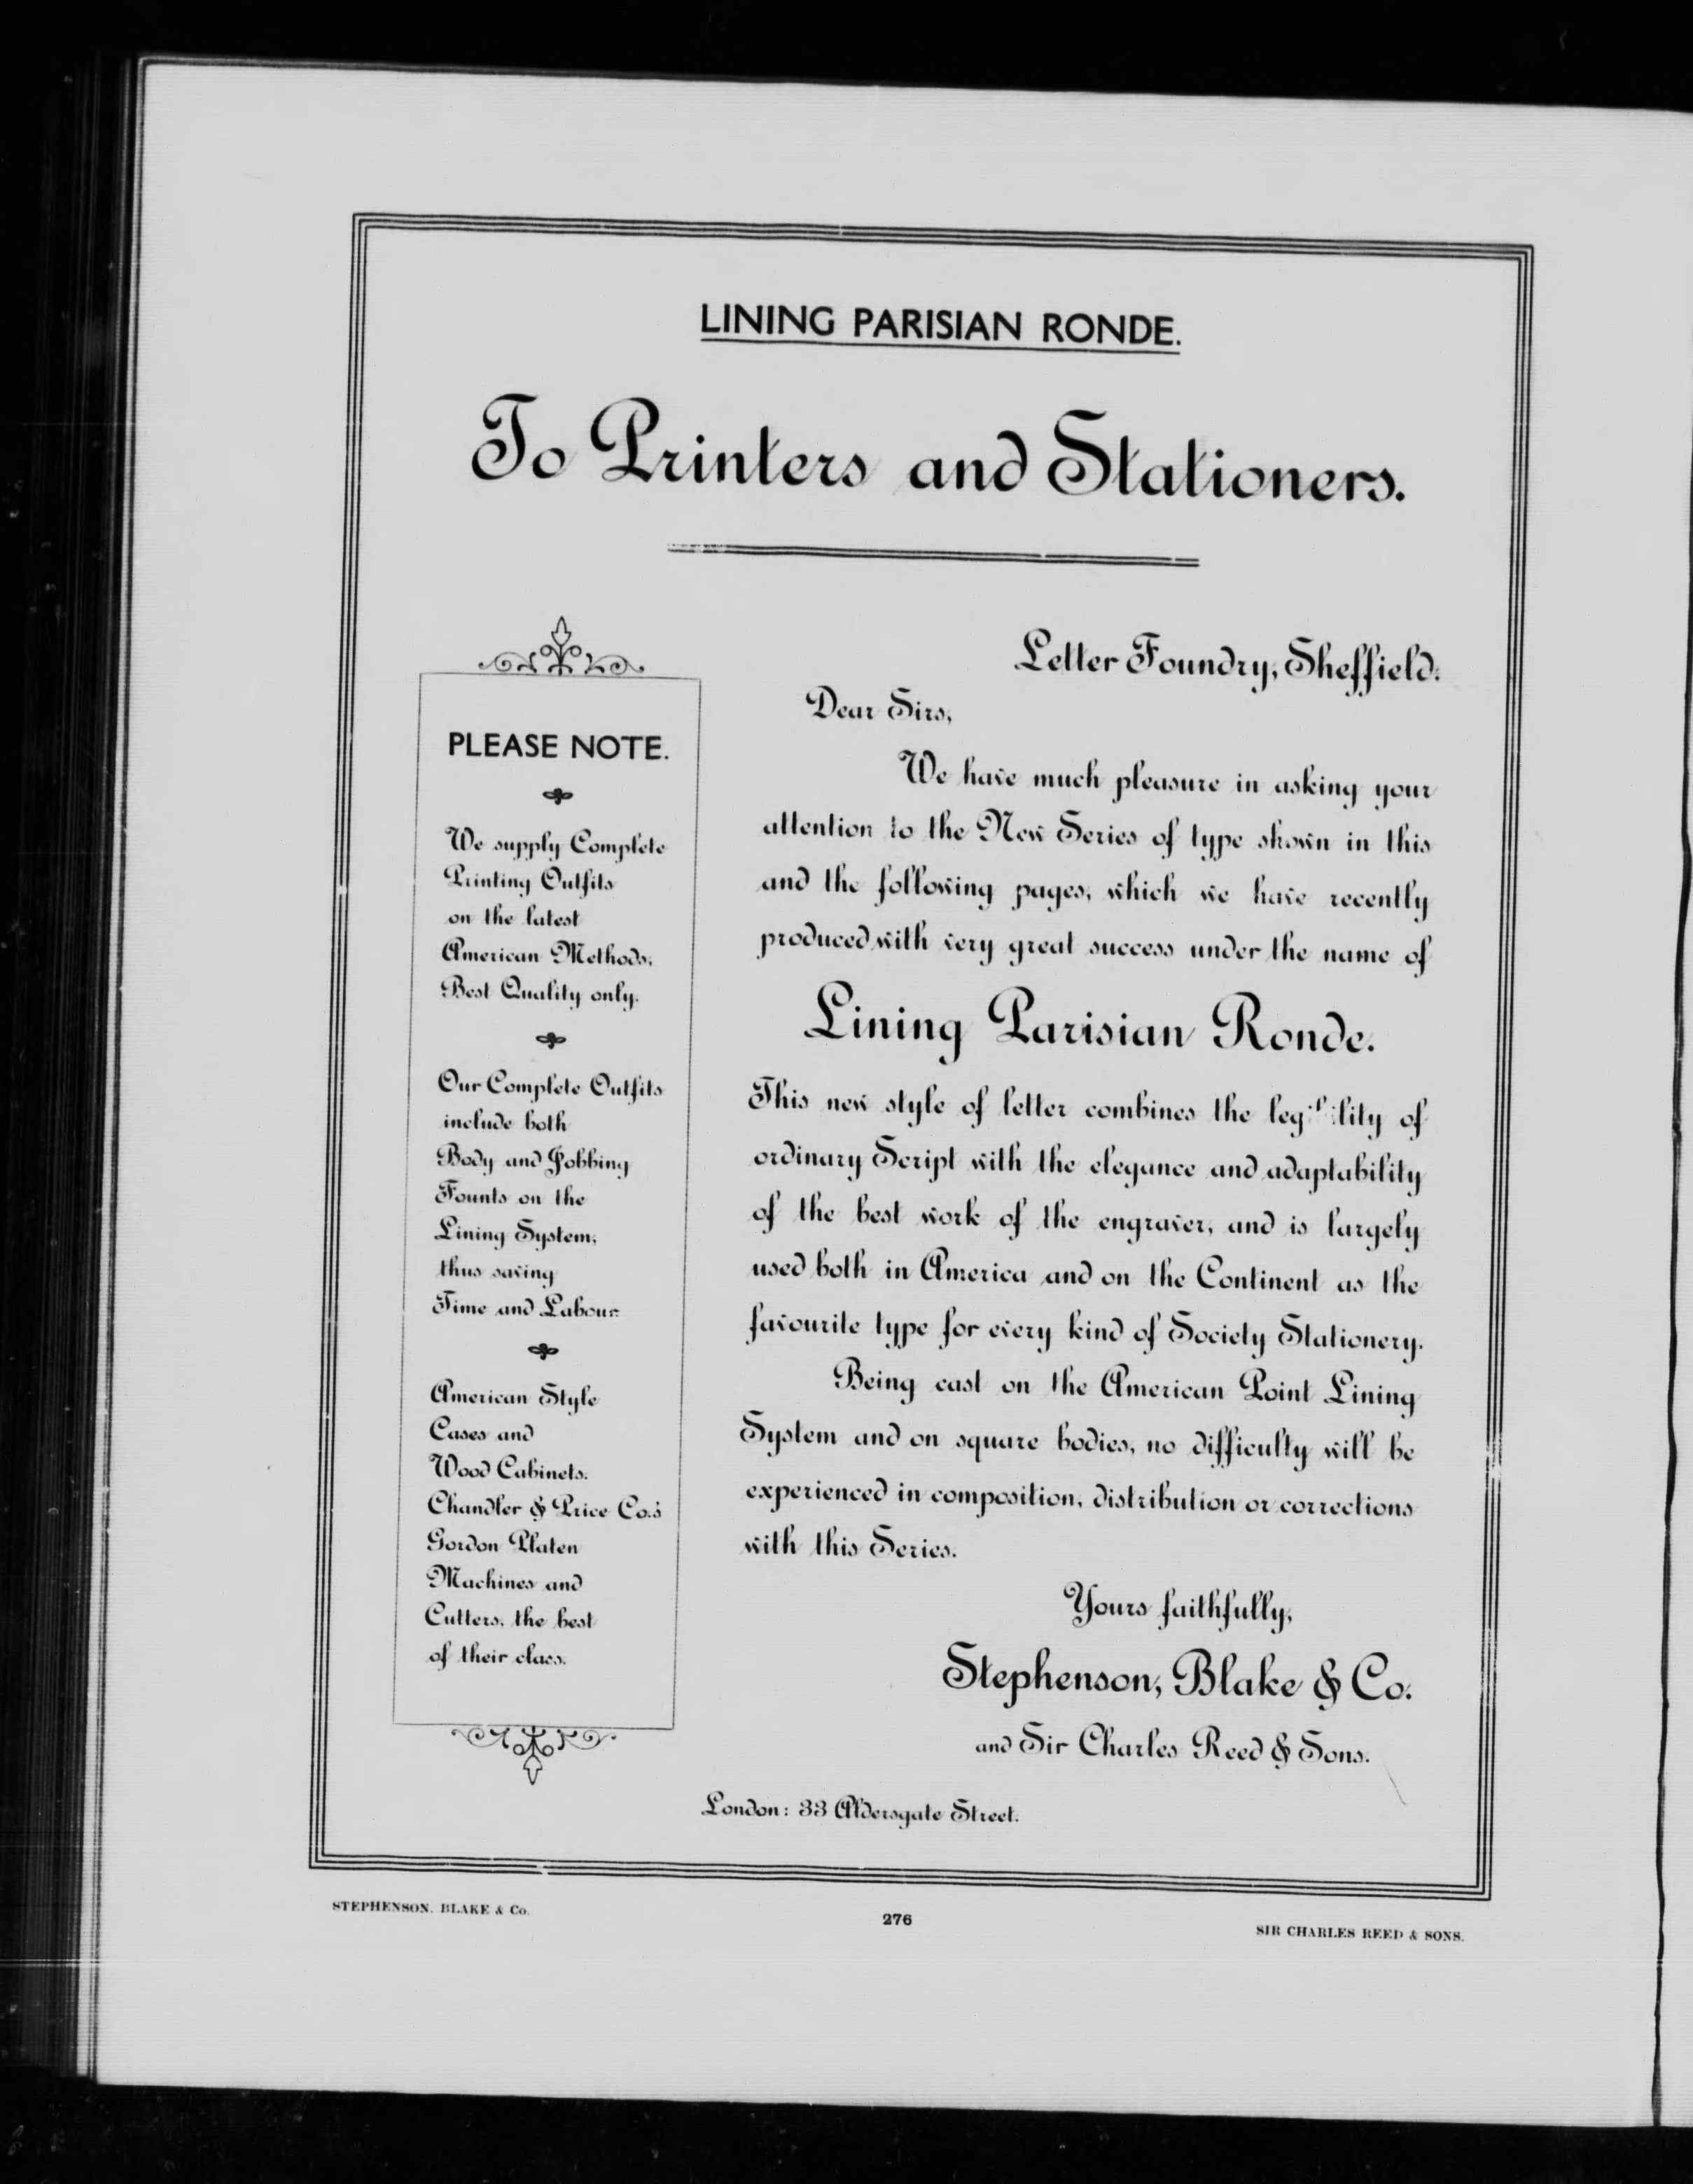 LINING PARISIAN RONDE.
To Printers and Stationers.
PLEASE NOTE.
We supply Complete
Printing Outfits
on the latest
American Methods.
Best Quality only.
Our Complete Outfits
include both
Body and Jobbing
Founts on the
Lining System,
thus saving
Time and Labour.
American Style
Cases and
Wood Cabinets.
Chandler & Price Co.'s
Gordon Platen
Machines and
Cutters, the best
of their class.
Letter Foundry, Sheffield.
Dear Sirs,
We have much pleasure in asking your
attention to the New Series of type shown in this
and the following pages, which we have recently
produced with very great success under the name of
Lining Parisian Ronde.
This new style of letter combines the legibility of
ordinary Script with the elegance and adaptability
of the best work of the engraver, and is largely
used both in America and on the Continent as the
favourite type for every kind of Society Stationery.
Being cast on the American Point Lining
System and on square bodies, no difficulty will be
experienced in composition, distribution or corrections
with this Series.
Yours faithfully,
Stephenson, Blake & Co.
and Sir Charles Reed & Sons.
London: 33 Aldersgate Street.
STEPHENSON, BLAKE & Co.
276
SIR CHARLES REED & SONS.